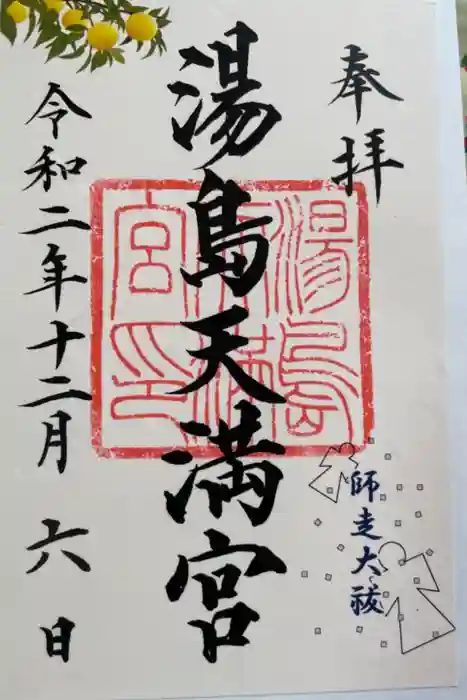 奉拝
湯島天満宮
湯島天満宮印
令和二年十二月六日
師走大祓